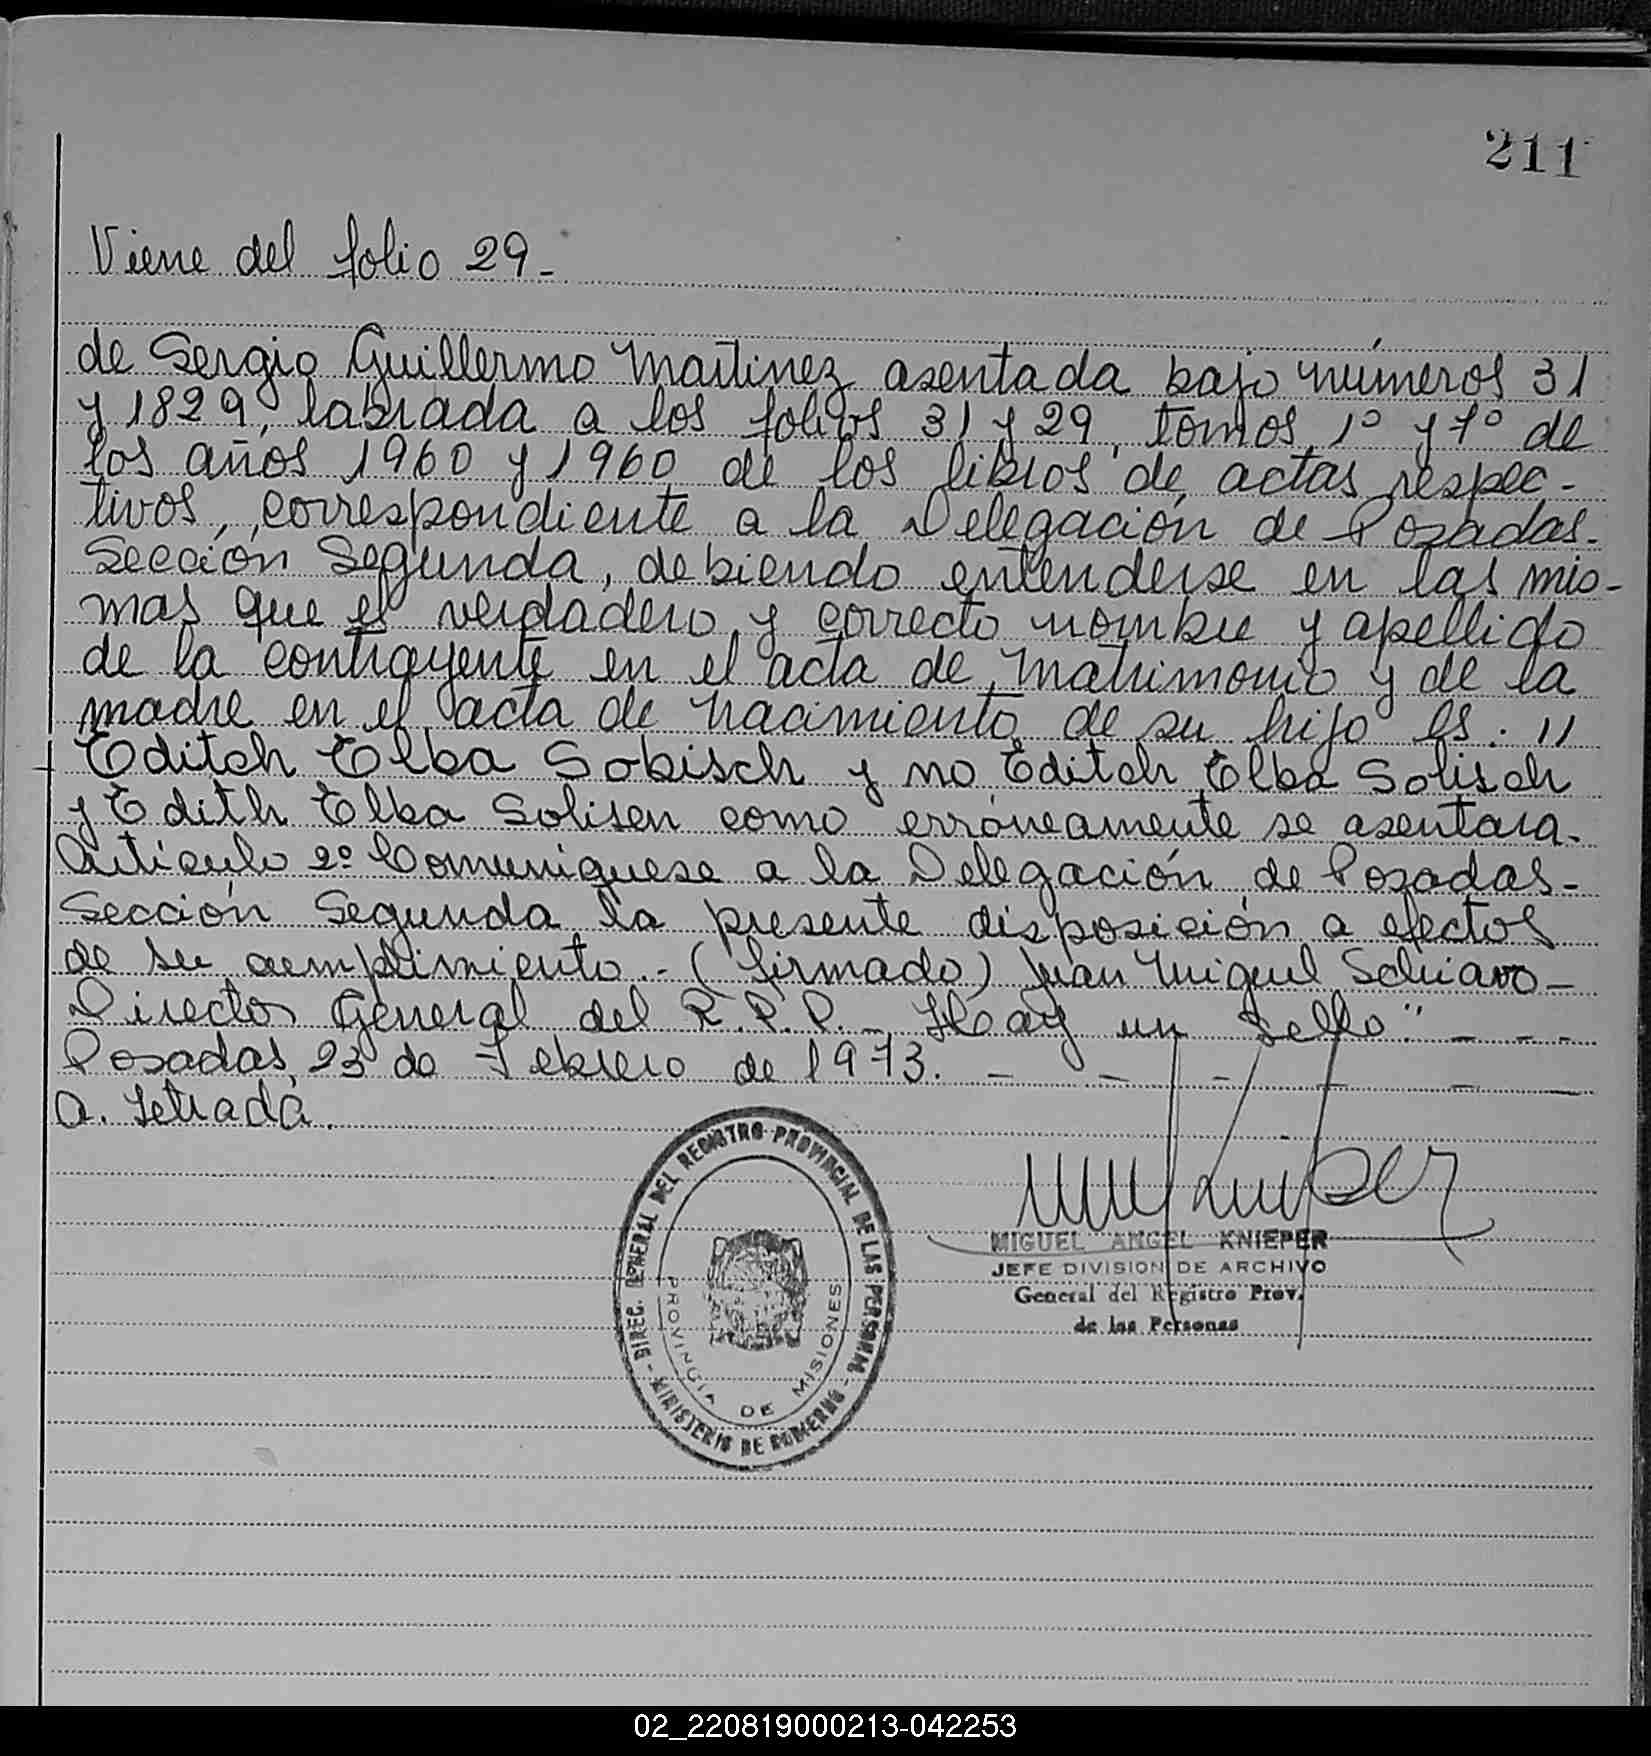 211
Viene del folio 29-
de Sergio Guillermo Martinez asentada bajo números 31
y 1829, labrada a los folios 31 y 29, tomos 1º y 7º de
los años 1960 y 1960 de los libros de actas respec-
tivos, correspondiente a la Delegación de Posadas-
Sección Segunda, debiendo entenderse en las mis-
mas que el verdadero y correcto nombre y apellido
de la contrayente en el acta de matrimonio y de la
madre en el acta de nacimiento de su hijo es: "
Editch Elba Sobisch y no Editch Elba Solisch
y Edith Elba Solisen como erróneamente se asentara-
Artículo 2º Comuniquese a la Delegación de Posadas-
Sección Segunda la presente disposición a efectos
de su cumplimiento.- (firmado) Juan Miguel Schiavo-
Director General del R.P.P.- Hay un Sello" - - -
Posadas, 23 de Febrero de 1973. - - - - - -
DIREC. GENERAL DEL REGISTRO PROVINCIAL DE LAS PERSONAS
PROVINCIA DE MISIONES
- MINISTERIO DE GOBIERNO -
MIGUEL ANGEL KNIEPER
JEFE DIVISION DE ARCHIVO
General del Registro Prov.
de las Personas
02_220819000213-042253